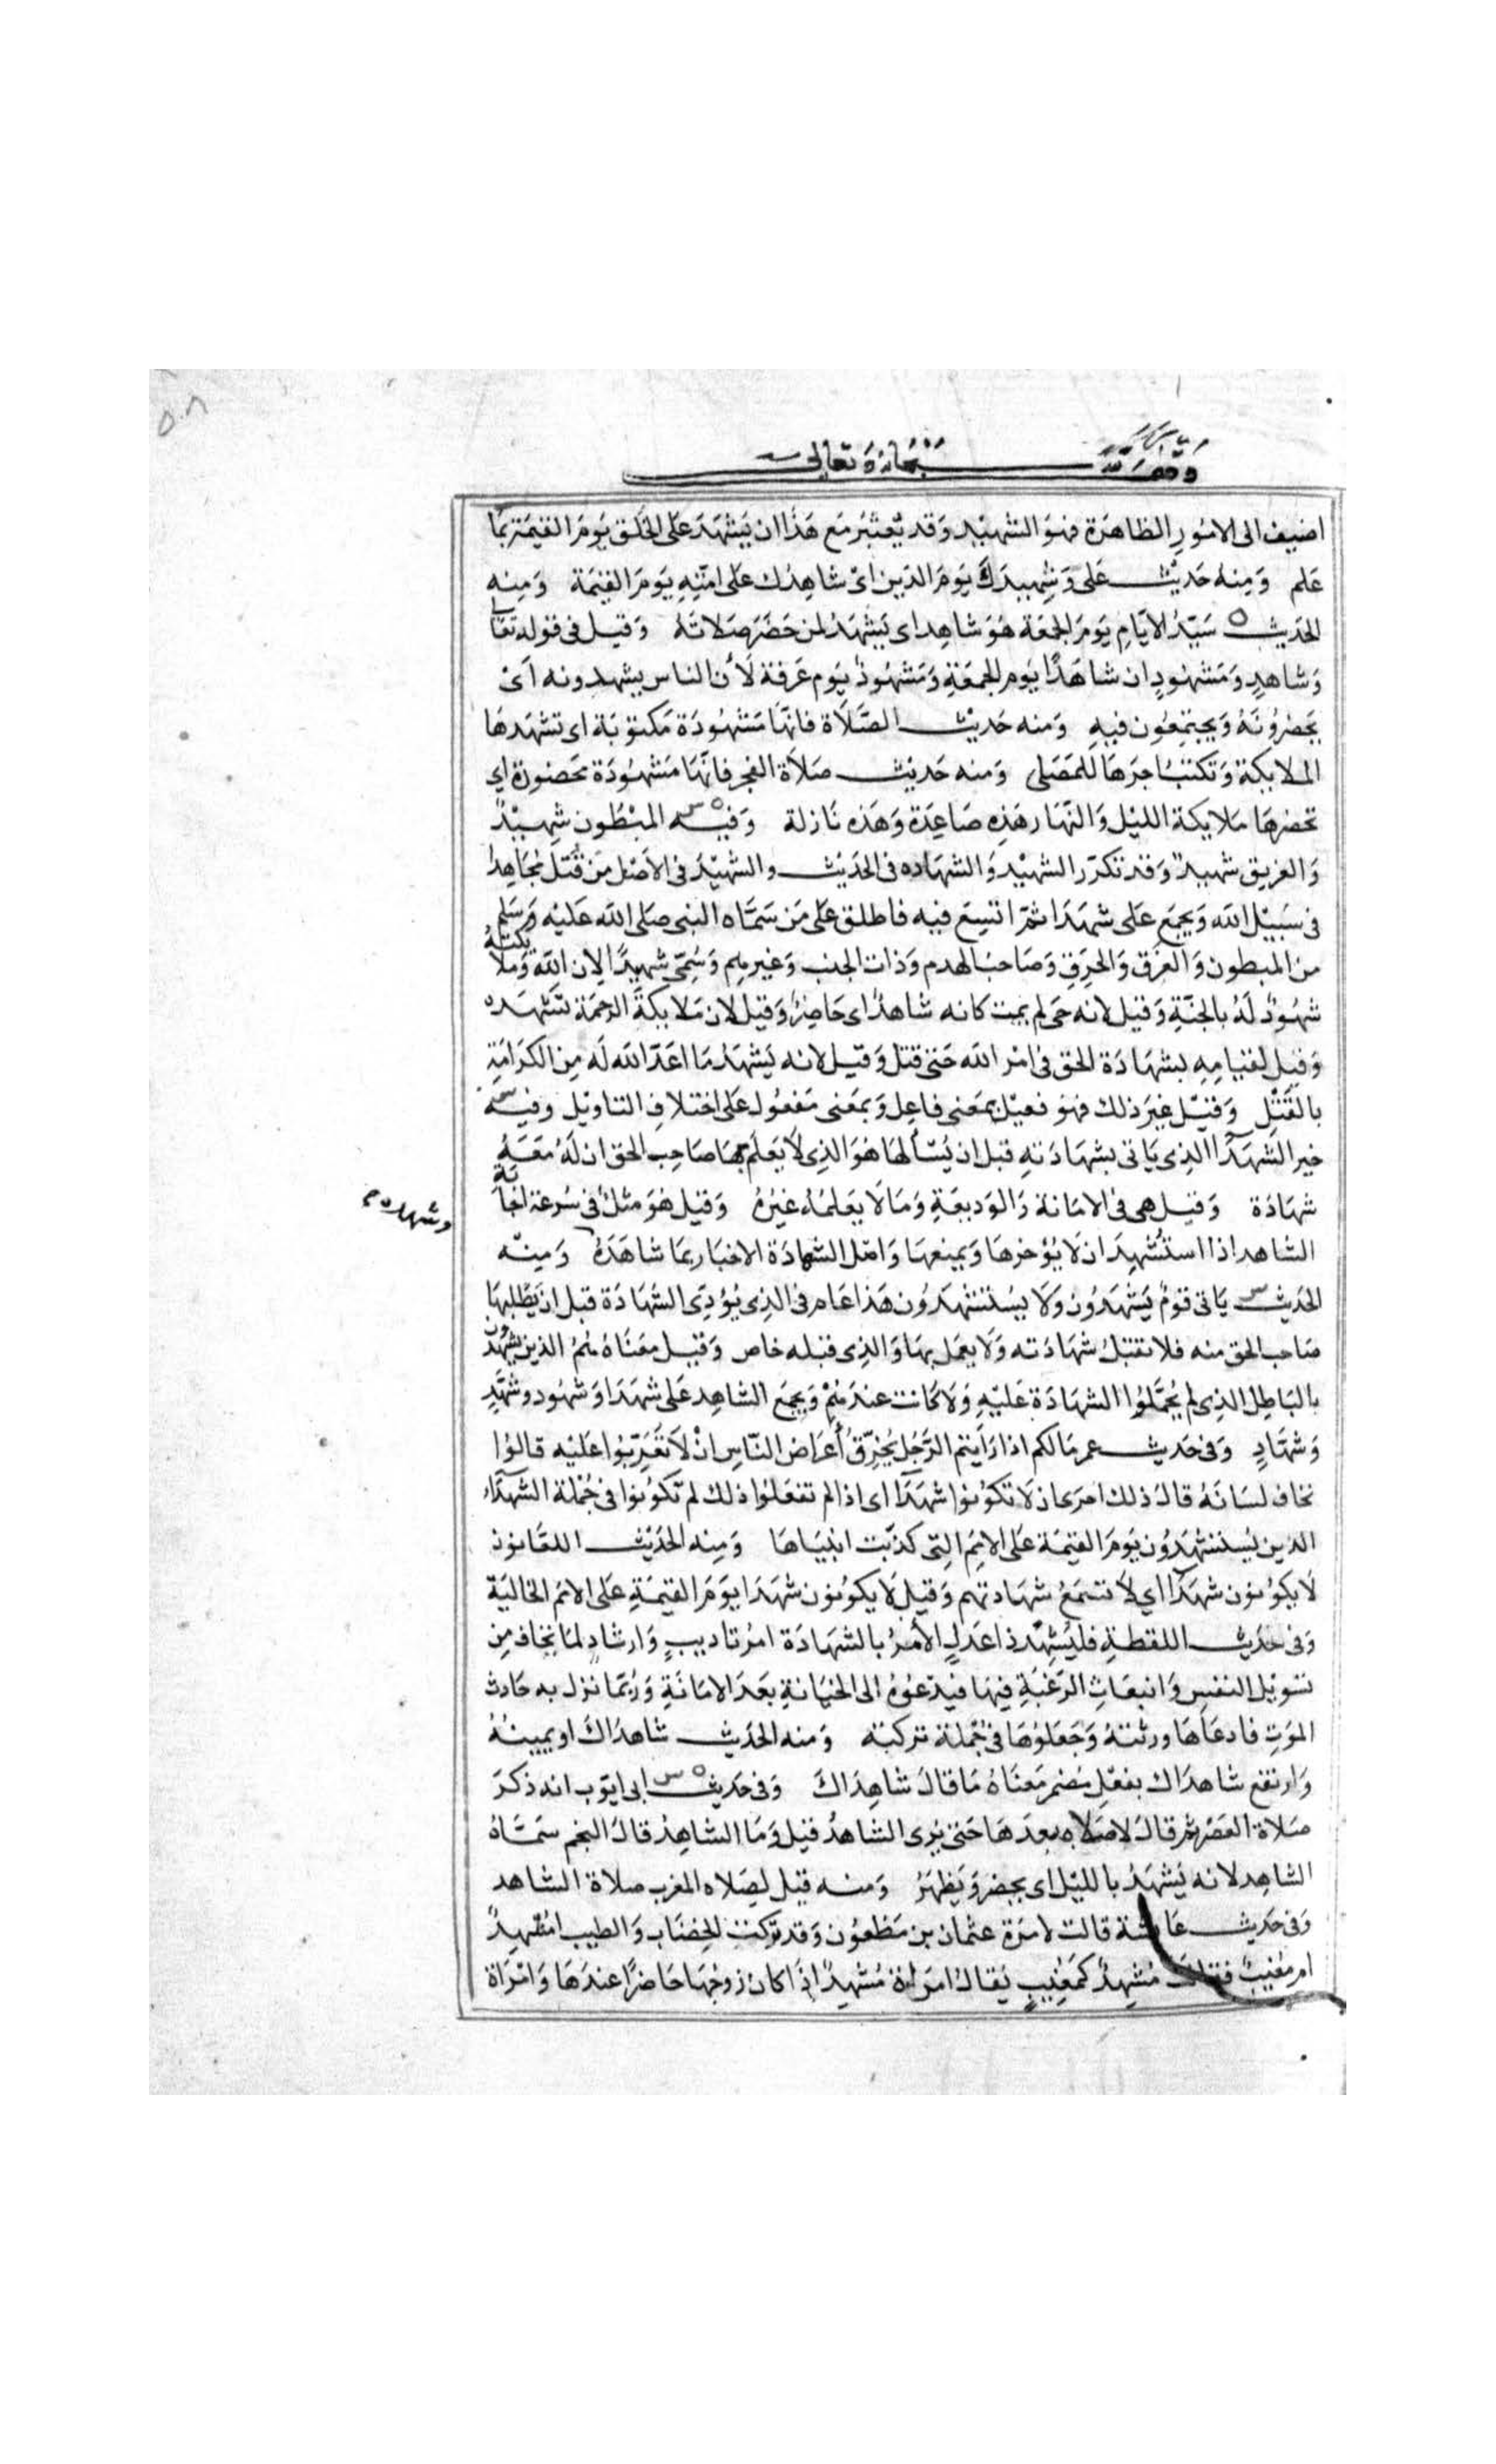 ٥٠٨
وقف لله سبحانه وتعالى
اضيف الى الامُورِ الظاهرَة فهوَ الشهيْد وَقد يُعتَبَر مَع هَذا ان يَشهَدَ عَلى الخَلق يَومَ القيٰمَة بمَا
عَلم وَمِنه حَديْث عَلى وَشهِيدكَ يَومَ الدّين اىْ شاهِدُك عَلى امّتِهِ يَومَ القيٰمَة وَمِنه
الحَديث سَيّدُ الايَّامِ يَومَ الجمعَة هُوَ شاهِد اى يَشهَدُ لمن حَضَرَ صَلاتَهُ وَقيل فى قوله تعَالى
وَشاهِدٍ وَمَشهُودٍ ان شاهَدًا يَوم الجمعَةِ وَمَشهُودٌ يَوم عَرفة لأن الناس يشهدونه اَىْ
يَحضرُونَهُ وَيجتمِعُون فيهِ وَمنه حَديْث الصَّلَاة فانّها مَشهُودَة مَكتوبَة اى تشهَدهَا
الملايكة وَتكتبُ اجرَهَا للمُصَلى وَمنه حَديث صَلاَة الفجر فانّهَا مَشهُودَة محَضورة اي
تحضرهَا مَلايكة الليْل وَالنّهَار هَذِه صَاعِدَة وَهَذه نَازلة وَفيْه المبْطُون شهِيْدٌ
وَالغريق شهيدٌ وَقد تكرّر الشهيْد وَالشهَاده فى الحَديْث والشهيْدُ فى الاَصْل مَن قُتل مُجَاهِدًا
فى سَبيْل الله وَيجمَع عَلى شهَدَا ثمّ اتسِعَ فيه فاطلق عَلى مَن سَمَّاه النبى صَلى الله عَليْه وَسَلم
منَ المبطون وَالغَرق وَالحَرَق وَصَاحبُ الهدم وَذات الجنب وَغيرهم وَسُمّىَ شهيدًا لان الله وَملايكتهُ
شهُودٌ لهُ بالجَنّةِ وَقيل لانه حَى لم يمت كانه شاهدٌ اى حَاضِرٌ وَقيل لان مَلايكةَ الرحمَة تشهَده
وَقيل لقيامِهِ بشهَادَة الحَق فى امْر الله حَتى قتل وَقيل لانه يَشهَدُ مَا اعَدّ الله لَه مِن الكرَامَةِ
بالقَتْلِ وَقيْل غيرَ ذلك فهوَ فعيْل بمَعَنى فاعِل وَبمعَنى مَفعُول عَلى اختلافِ التاويْل وفيه
خير الشهَدَآ الذى يَاتى بشهَادَتهِ قبل ان يُسْألهَا هُوَ الذى لا يَعلَم بهَا صَاحِب الحَق ان لهُ مَعَهُ
شهَادَة وَقيل هى فى الامَانة وَالوَديعَةِ وَمَا لَا يَعلمُهُ غيرُهُ وَقيل هُوَ مَثلٌ فى سُرعَة اجابَة
وشهاده م
الشاهد اذا استُشهِدَ ان لَا يُؤخرهَا وَيمنعهَا وَاصْل الشهادَة الاخبَار بمَا شاهَدَهُ وَمِنْه
الحَديث يَاتى قومٌ يَشهَدُونَ وَلَا يسُتشهَدُون هَذا عَام فى الذِى يُؤدّى الشهَادَة قبل ان يَطْلبهَا
صَاحب الحَق منه فلا تقبَلُ شهَادَته وَلَا يعمَل بهَا وَالذِى قبله خاص وَقيل مَعنَاهُ هُمُ الذين يشهدُون
بالبَاطِل الذى لم يُحمَّلوُا الشهَادَة عَليْهِ وَلَا كَانت عندَهُمْ وَيجمَع الشاهِد عَلى شهَدَا وَشهُود وشهَّدٍ
وَشهَّادٍ وَفى حَديث عمر مَا لكم اذا رَاَيتم الرّجُل يُخرّقُ أعرَاض النّاسِ انْ لاَ تعَرّبُوا عَليْه قالوُا
نخاف لسَانَهُ قالَ ذلك احرَى ان لَا تكوُنوُا شهَدَآ اى اذا لم تفعَلوُا ذلك لم تكوُنوُا فى جُمْلة الشهَدَآءِ
الذين يُستشهَدُون يَومَ القيٰمَة عَلى الامَمِ التِى كذّبَت انبيَاهَا وَمِنه الحَدِيْث اللعّانون
لَا يكوُنوُن شهَدَآ اي لا تسمَعُ شهَادتهم وَقيل لَا يكوُنوُن شهَدَا يوَمَ القيٰمَةِ عَلى الامَم الخاليَة
وَفى حَديْث اللقطةِ فليُشهِدْ ذا عَدلٍ الأمرُ بالشهَادَة امرُ تاديبٍ وَارشادٍ لمَا يخاف مِن
تسويْل النفسِ وَانبعَاثِ الرّغبَةِ فيهَا فيَدعُوهُ الى الخيَانةِ بعَدَ الامَانَةِ وَرُبّمَا نزل به حَادث
الموَتِ فادعَاهَا ورثتهُ وَجَعَلوُهَا فى جُملة تركته وَمنه الحَديث شاهدَاكَ او يمينُهُ
وَارتفعَ شاهدَاك بفعْلٍ مُضمر مَعنَاهُ مَا قالَ شاهِدَاكَ وَفى حَديث ابى ايّوب انه ذكرَ
صَلاة العَصْر ثم قالَ لا صَلاه بعدهَا حَتى يُرى الشاهدُ قيل وَمَا الشاهِدُ قالَ النجم سَمَّاهُ
الشاهِد لانه يَشهَدُ بالليْل اى يحضر وَيَظهَرُ وَمنه قيل لصَلاه المغرب صلاة الشاهد
وَفى حَديث عَايشة قالت لامرَة عثمان بن مَظعُون وَقد تركت الخِضَاب وَالطيب امُشهِدٌ
ام مُغيبٌ فقالت مُشهِدٌ كمَغُيبٍ يُقالُ امرَاة مُشهِدٌ اذَا كانَ زوجُهَا حَاضِرًا عندَهَا وَامْرَاة